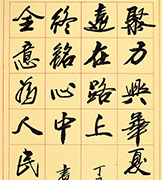 聚力興華夏
遠在路上
終銘心中
全意為人民